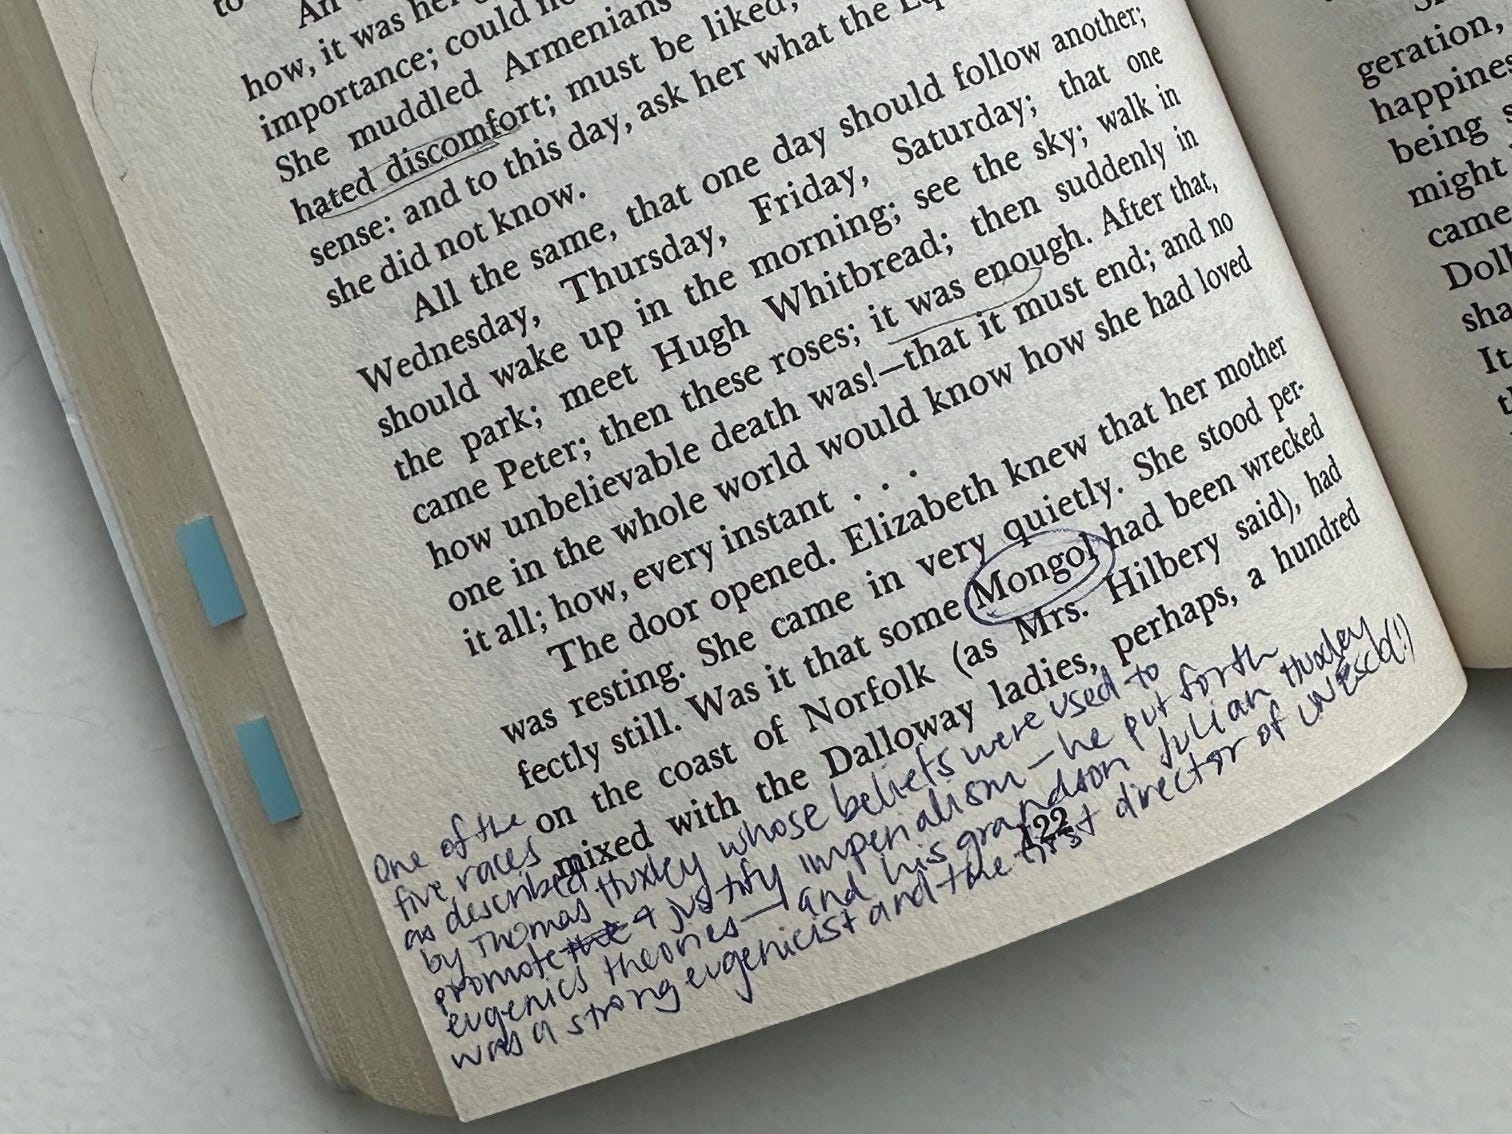 to
An
how, it was her
importance; could
She muddled Armenians
hated discomfort; must be liked;
sense: and to this day, ask her what the Eq
she did not know.
All the same, that one day should follow another;
Wednesday, Thursday, Friday, Saturday; that one
should wake up in the morning; see the sky; walk in
the park; meet Hugh Whitbread; then suddenly in
came Peter; then these roses; it was enough. After that,
how unbelievable death was!—that it must end; and no
one in the whole world would know how she had loved
it all; how, every instant . . .
The door opened. Elizabeth knew that her mother
was resting. She came in very quietly. She stood per-
fectly still. Was it that some Mongol had been wrecked
on the coast of Norfolk (as Mrs. Hilbery said), had
mixed with the Dalloway ladies, perhaps, a hundred
122
One of the
five races
as described
by Thomas Huxley whose beliefs were used to
promote the & justify imperialism — he put forth
eugenics theories — and his grandson Julian Huxley
was a strong eugenicist and the first director of UNESCO(!)
geration,
happines
being s
might
came
Doll
sha
It
t